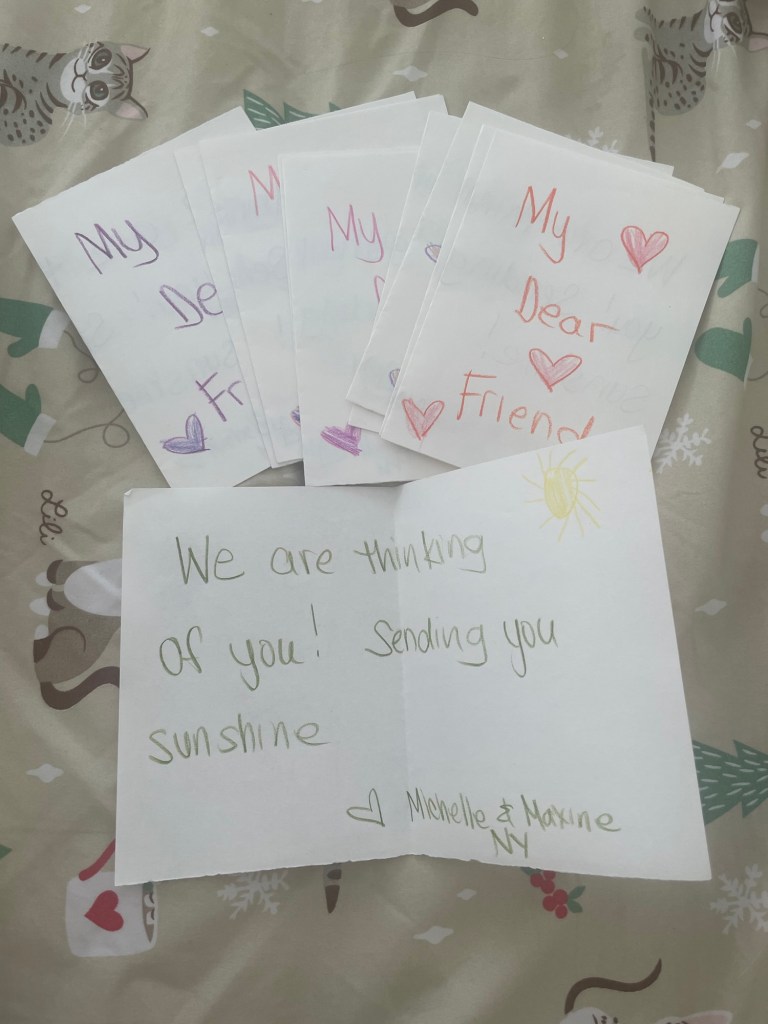 My
De
Fr
M
My
My
Dear
Friend
We are thinking
of you! Sending you
sunshine
Michelle & Maxine
NY
Lili
Lili